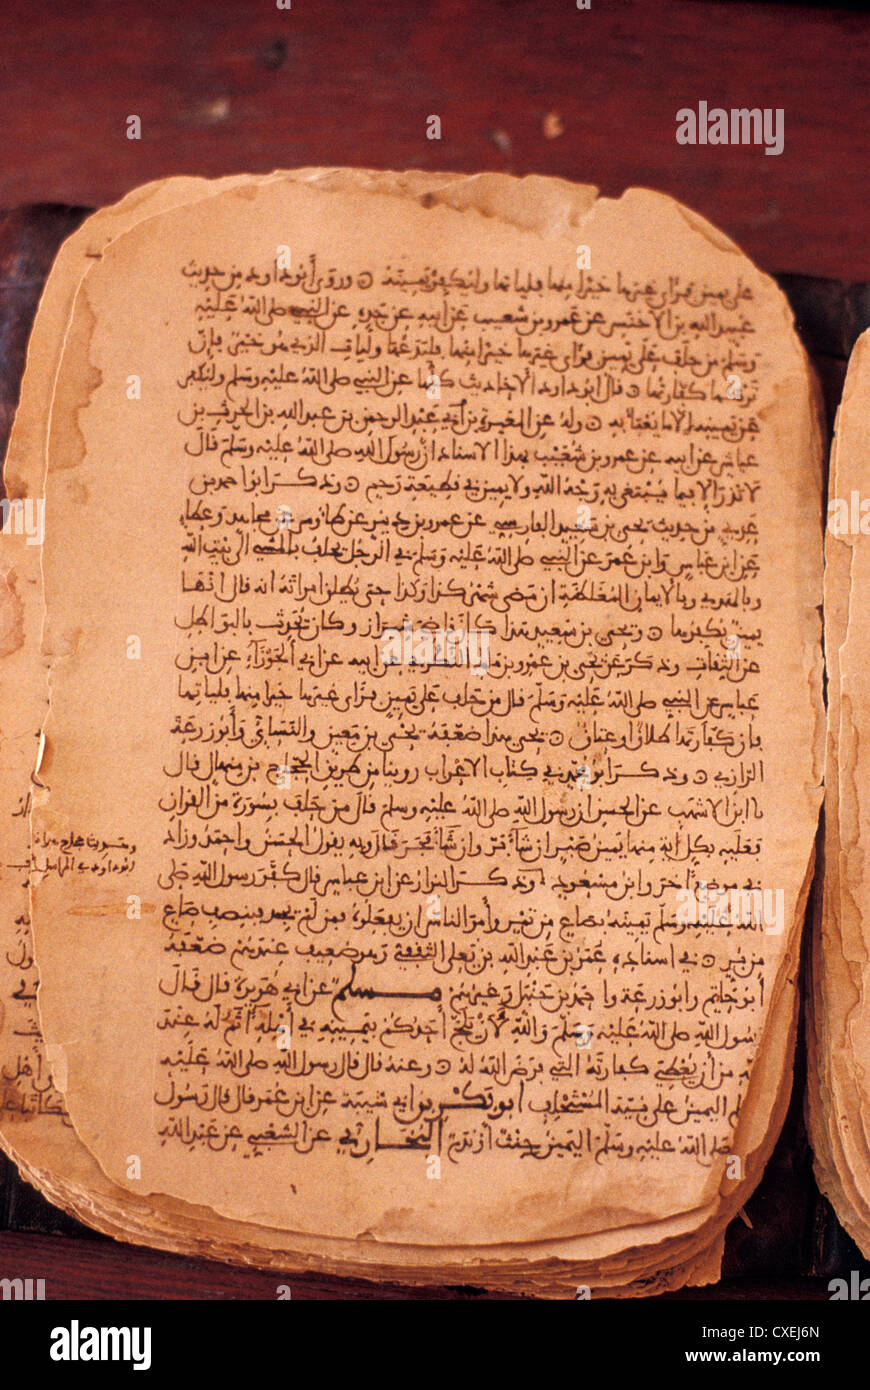 على يمين فرأى غيرها خيرا منها فليأتها وليكفر عن يمينه وروى أبو داود من حديث
عبيد الله بن الاخنس عن عمرو بن شعيب عن ابيه عن جده عن النبي صلى الله عليه
وسلم من حلف على يمين فرأى غيرها خيرا منها فليدعها وليات الذي هو خير فإن
تركها كفارتها قال ابو داود الاحاديث كلها عن النبي صلى الله عليه وسلم وليكفر
عن يمينه الا ما يعبأ به وله عن المغيرة بن عبد الرحمن بن عبد الله بن الحرث بن
عياش عن ابيه عن عمرو بن شعيب بهذا الاسناد ان رسول الله صلى الله عليه وسلم قال
لا نذر إلا فيما يبتغى به وجه الله ولا يمين في قطيعة رحم وذكر ابو احمد بن
عدي من حديث يحيى بن سعيد الفارسي عن عمرو بن دينر عن طاوس ومجاهد وعطاء
عن ابن عباس وابن عمر عن النبي صلى الله عليه وسلم في الرجل يحلف بالمشي الى بيت الله
وبالهدي وبالايمان المغلظة ان مضى شهر كذا وكذا حتى يطلق امراته انه قال انها
يمين يكفرها ويحيى بن سعيد هذا كان قاضي شيراز وكان يحدث بالبواطل
عن الثقات وذكر عن يحيى بن عمرو بن مالك النكري عن ابيه عن ابي الجوزاء عن ابن
عباس عن النبي صلى الله عليه وسلم قال من حلف على يمين فرأى غيرها خيرا منها فلياتها
فإن كفارتها طلاق او عتاق يحيى هذا ضعفه يحيى بن معين والنسائي وأبو زرعة
الرازي وذكر ابو محمد في كتاب الاعراب روينا من طريق الحجاج بن منهال قال
نا ابو الاشهب عن الحسن ان رسول الله صلى الله عليه وسلم قال من حلف بسورة من القران
فعليه بكل اية منها يمين صبر ان شاء بر وان شاء فجر قال وبه يقول الحسن واحمد وزاد
في موضع اخر وابن مسعود وذكر البزار عن ابن عباس قال كفر رسول الله صلى
الله عليه وسلم يمينه بصاع من تمر وأمر الناس ان يفعلوه فمن لم يجد فبنصف صاع
من بر في اسناده عمر بن عبد الله بن يعلى الثقفي وهو ضعيف عندهم ضعفه
أبو حاتم وابو زرعة واحمد بن حنبل وغيرهم مسلم عن ابي هريرة قال قال
رسول الله صلى الله عليه وسلم والله لأن يلج أحدكم بيمينه في أهله اثم له عند
الله من أن يعطي كفارته التي فرض الله له وعنه قال قال رسول الله صلى الله عليه
وسلم اليمين على نية المستحلف أبو بكر بن ابي شيبة عن ابن عمر قال قال رسول
الله صلى الله عليه وسلم اليمين حنث أو ندم البخاري عن الشعبي عن عبد الله
alamy stock photo
a
alamy
Image ID: CXEJ6N
www.alamy.com